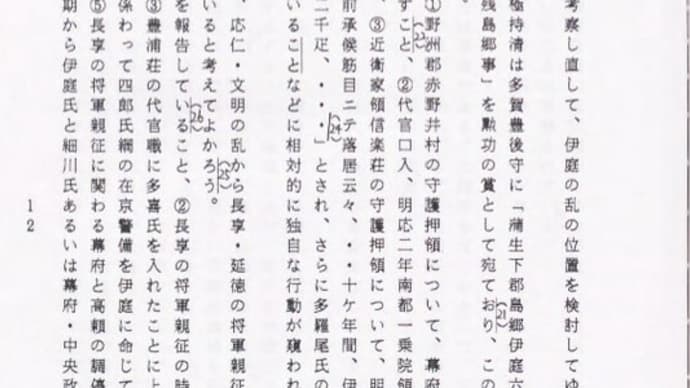 考察し直して、伊庭の乱の位置を検討して
極持清は多賀豊後守に「蒲生下郡島郷伊庭六
残島郷事」を勲功の賞として宛ており、(21)この
①野洲郡赤野井村の守護押領について、幕府
すこと、(22)②代官口入、明応二年南都一乗院領
、③近衛家領信楽荘の守護押領について、明
前承候筋目ニテ落居云々、・・十ケ年間、伊
二千疋、・・・」とされ、(24)さらに多羅尾氏の
いることなどに相対的に独自な行動が窺われ
、応仁・文明の乱から長享・延徳の将軍親征
いると考えてよかろう。(25)
を報告していること、(26)②長享の将軍親征の時
③豊浦荘の代官職に多喜氏を入れたことに上
係わって四郎氏綱の在京警備を伊庭に命じて
⑤長享の将軍親征に関わる幕府と高頼の調停
期から伊庭氏と細川氏あるいは幕府・中央政
12